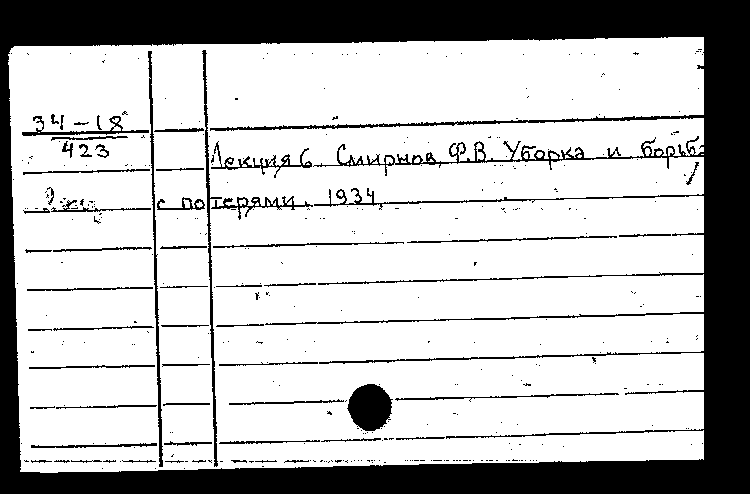 34-18
423
Лекция 6. Смирнов, Ф.В. Уборка и борьба
с потерями. 1934.